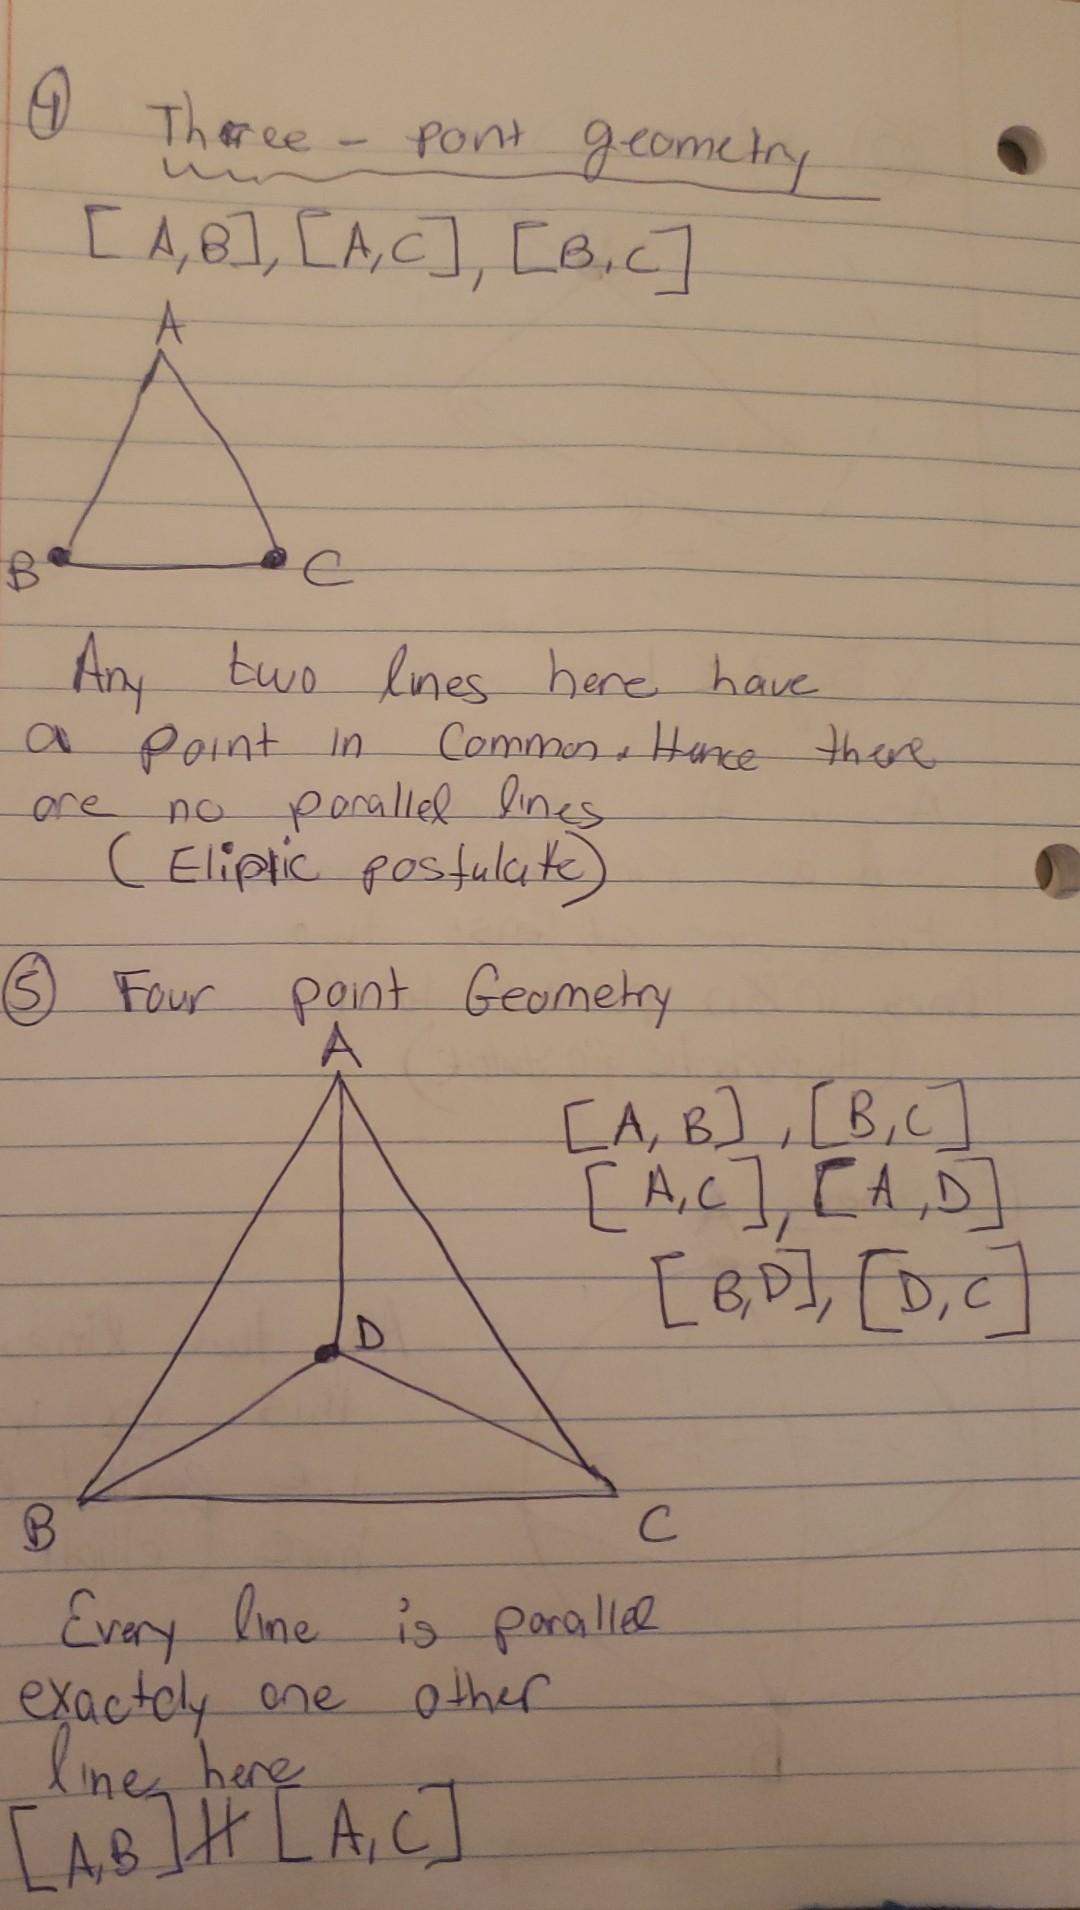 ④ Three - pont geometry
[A,B], [A,C], [B,C]
A
B C
Any two lines here have
a point in Common. Hence there
are no parallel lines
(Eliptic postulate)
⑤ Four point Geometry
A
[A,B], [B,C]
[A,C], [A,D]
[B,D], [D,C]
D
B C
Every line is parallel
exactly one other
line here
[A,B] ∦ [A,C]